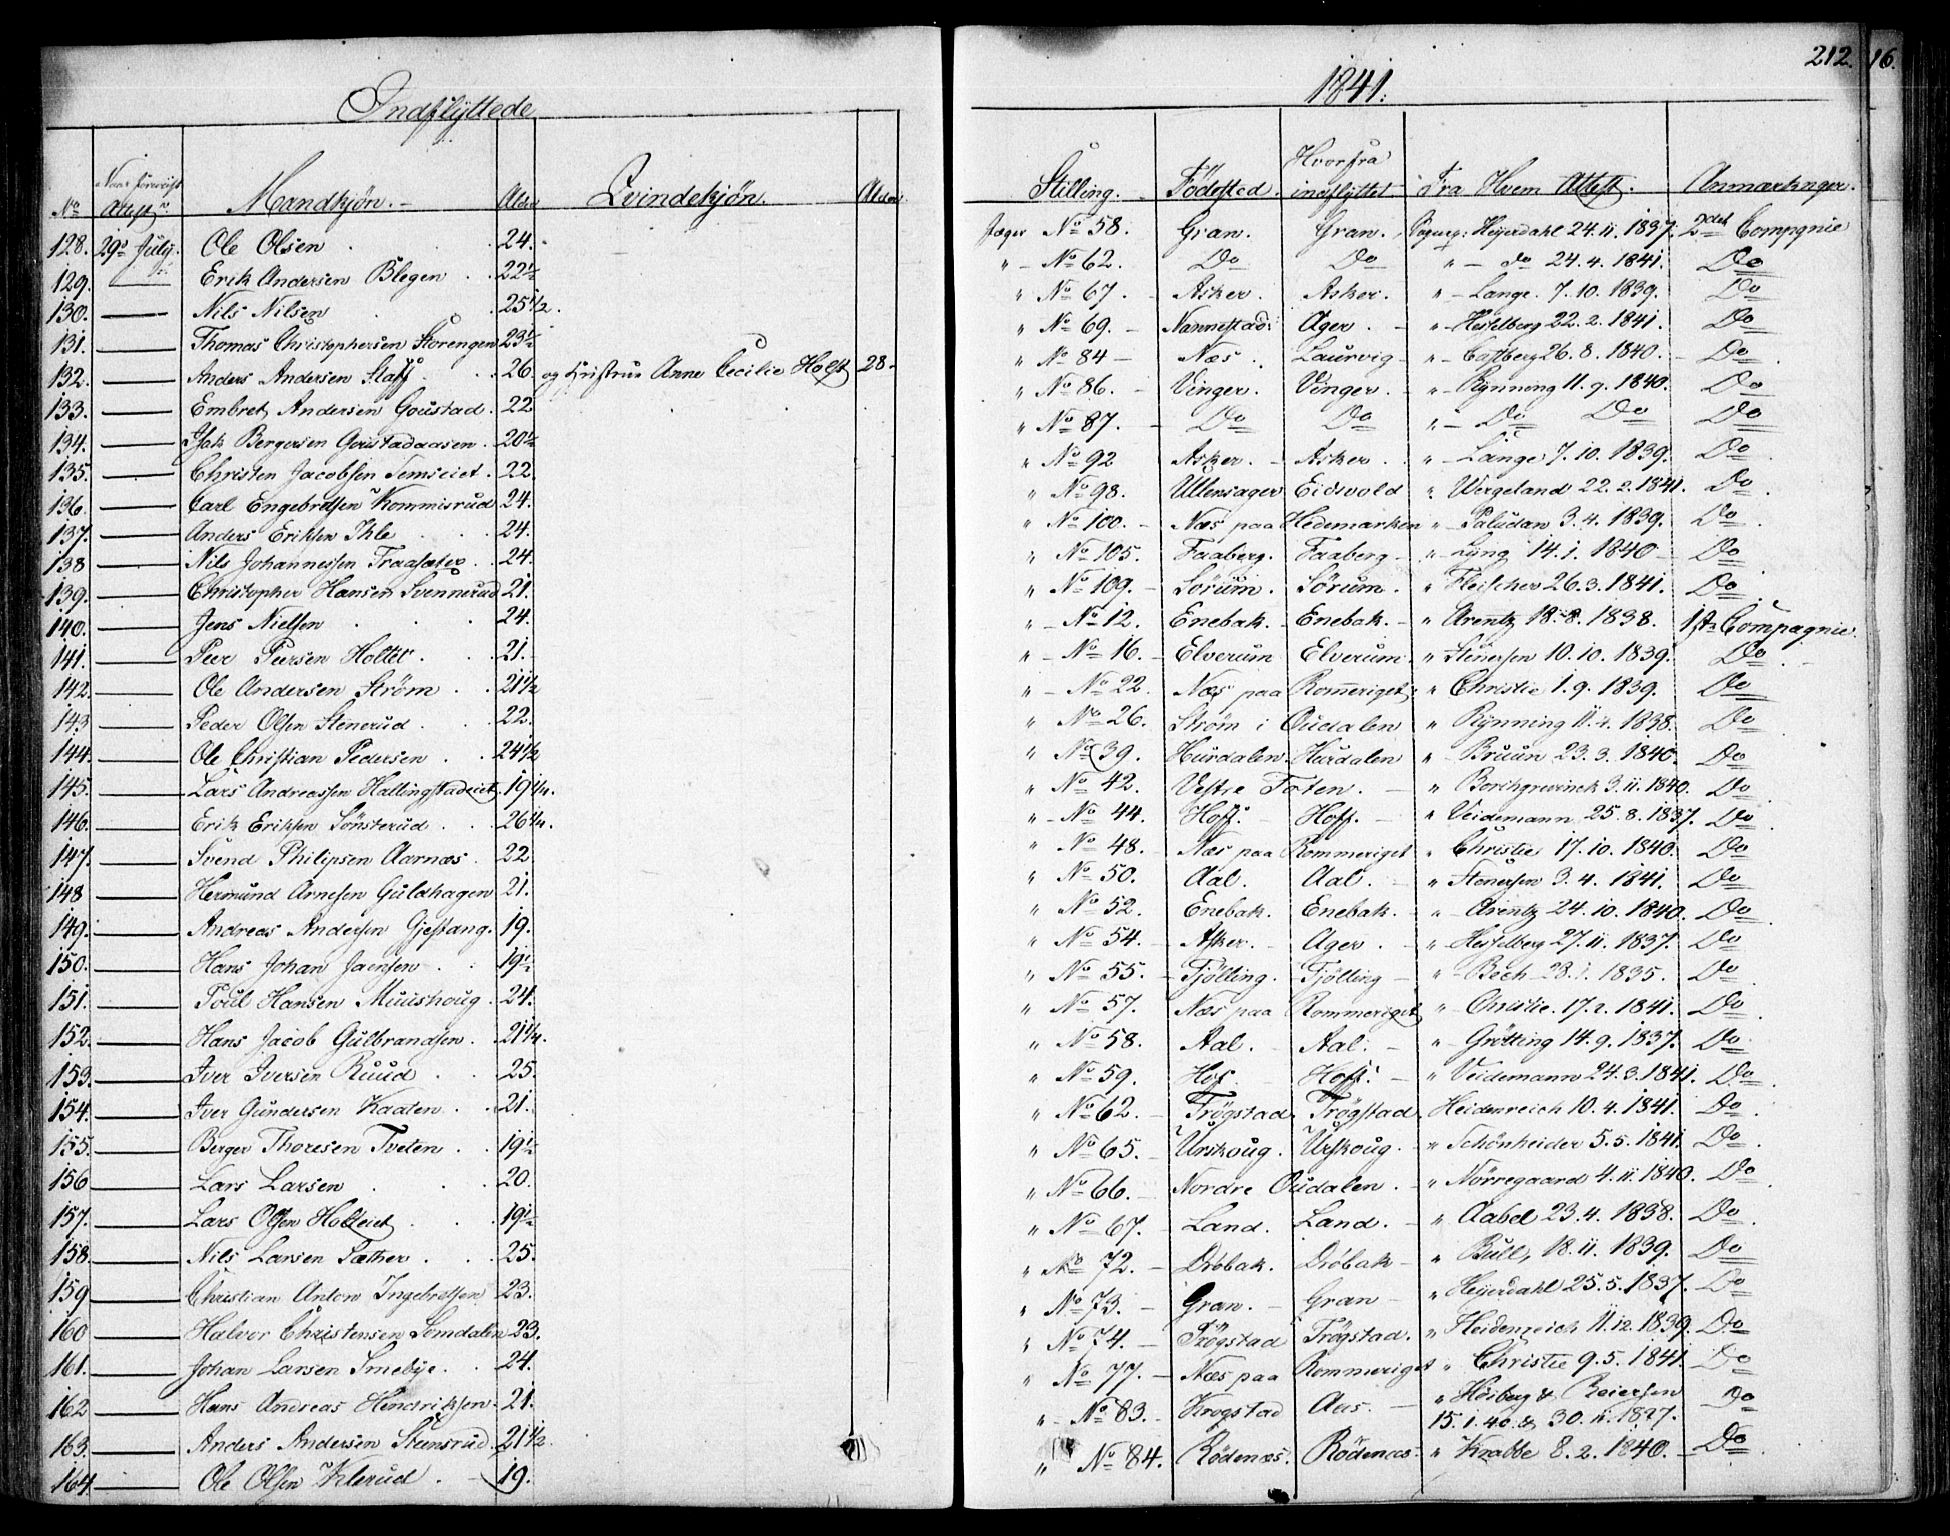 212. 16.
Indflyttede 1841.
No Naar foreviist Attest Mandkjøn. Alder Qvindekjøn. Alder Stilling. Fødested. Hvorfra indflyttet Fra Hvem Attest. Anmærkninger.
128. 29de July. Ole Olsen 24. Jæger No 58. Gran. Gran. Heyerdahl 24.11.1837. 2det Compagnie
129. Do Erik Andersen Blegen 22½ " No 62. Do Do " do 24.4.1841. Do
130. — Nils Nilsen 25½. " No 67. Asker. Asker. " Lange. 7.10.1839. Do
131. — Thomas Christophersen Storengen 23½ " No 69. Nannestad. Ager. " Hesselberg 22.2.1841. Do
132. — Anders Andersen Staff 26. og Hustrue Anne Cecilie Holst 28. " No 84 Næs. Laurvig " Castberg 26.8.1840. Do
133. — Embret Andersen Goustad. 22 " No 86. Vinger. Vinger. " Rynning 11.9.1840. Do
134. — Isak Bergersen Goustadaasen. 20½ " No 87. Do Do " Do Do Do
135. — Christen Jacobsen Semseiet. 22. " No 92 Asker. Asker. " Lange 7.10.1839. Do
136. — Carl Engebretsen Kommisrud 24. " No 98. Ullensager Eidsvold " Wergeland 22.2.1841. Do
137. — Anders Eriksen Ihle 24. " No 100. Næs paa Hedemarken " Paludan 3.4.1839. Do
138 — Nils Johannessen Traasæter. 24. " No 105. Faaberg. Faaberg " Lyng 14.1.1840 Do
139. — Christopher Hansen Svennerud 21. " No 109. Sørum. Sørum. " Fleischer 26.3.1841. Do
140. — Jens Nielsen 24. " No 12. Enebak. Enebak. " Arentz 18.8.1838. 1ste Compagnie
141. — Peer Peersen Holtet. 21. " No 16. Elverum Elverum. " Stenersen 10.10.1839. Do
142. — Ole Andersen Strøm 21½ " No 22. Næs paa Romeriget " Christie 1.9.1839. Do
143 — Peder Olsen Stenerud 22. " No 26. Strøm i Oudalen " Rynning 11.4.1838. Do
144. — Ole Christian Pedersen 24½ " No 39. Hurdalen Hurdalen " Bruun 23.3.1840. Do
145. — Lars Andreassen Hallingstadeiet 19¼. " No 42. Vestre Toten. " Borchgrevinck 3.11.1840. Do
146. — Erik Eriksen Sønsterud 26¼. " No 44. Hoff. Hoff. " Veidemann 25.8.1837. Do
147. — Svend Philipsen Aarnæs 22. " No 48. Næs paa Rommeriget " Christie 17.10.1840. Do
148 — Hermund Arnesen Guldhagen 21. " No 50. Aal. Aal. " Stenersen 3.4.1841. Do
149. — Andreas Andersen Gjestang. 19. " No 52. Enebak. Enebak. " Arentz 24.10.1840. Do
150. — Hans Johan Jaensen 19½ " No 54. Asker. Ager. " Hesselberg 27.11.1837. Do
151. — Poul Hansen Muushoug. 24. " No 55. Tjølling. Tjølling " Bech 28.1.1835. Do
152. — Hans Jacob Gulbrandsen 21¼. " No 57. Næs paa Rommeriget " Christie. 17.2.1841. Do
153. — Iver Iversen Ruud 25. " No 58. Aal. Aal. " Grøtting 14.9.1837. Do
154. — Iver Gundersen Kaaten 21. " No 59. Hof. Hoff. " Veidemann 24.3.1841. Do
155. — Berger Thoresen Tveten 19½ " No 62. Trøgstad. Trøgstad. Heidenreich 10.4.1841. Do
156 — Lars Larsen 20. " No 65. Urskoug. Urskoug. " Schønheider 5.5.1841. Do
157. — Lars Olsen Holteiet 19½ " No 66. Nordre Oudalen. " Nørregaard 4.11.1840. Do
158. — Nils Larsen Sæther 25. " No 67. Land. Land. " Aabel 23.4.1838. Do
159 — Christian Anton Ingebretsen 23. " No 72. Drøbak. Drøbak " Bull, 18.11.1839. Do
160 — Halvor Christensen Somdalen 23. " No 73. Gran. Gran " Heyerdahl 25.5.1837. Do
161. — Johan Larsen Smebye. 24. " No 74. Trøgstad Trøgstad. " Heidenreich 11.12.1839. Do
162 — Hans Andreas Hendriksen. 21. " No 77. Næs paa Rommeriget " Christie 9.5.1841. Do
163. — Anders Andersen Stensrud. 21½. " No 83. Krogstad Aas. " & Reiersen 15.1.40. & 30.11.1827. Do
164. Ole Olsen Klerud. 19. " No 84. Rødenæs. Rødenæs. " Krabbe 8.2.1840. Do